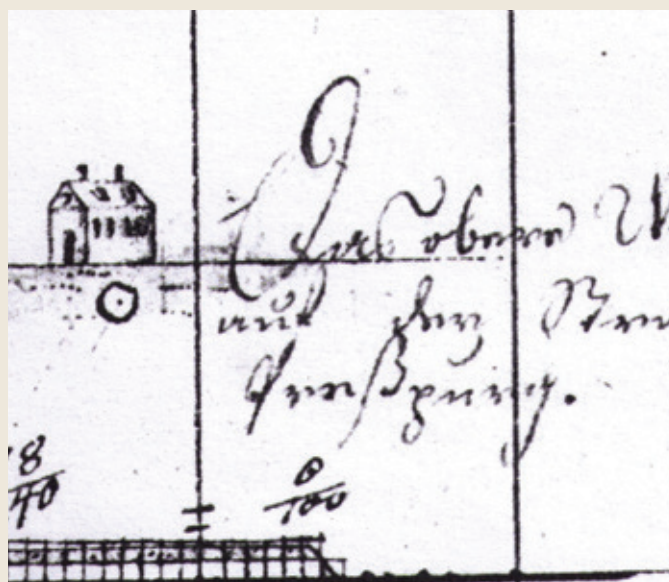 Das obere
auf der
Preßpurg.
8/40
0/100